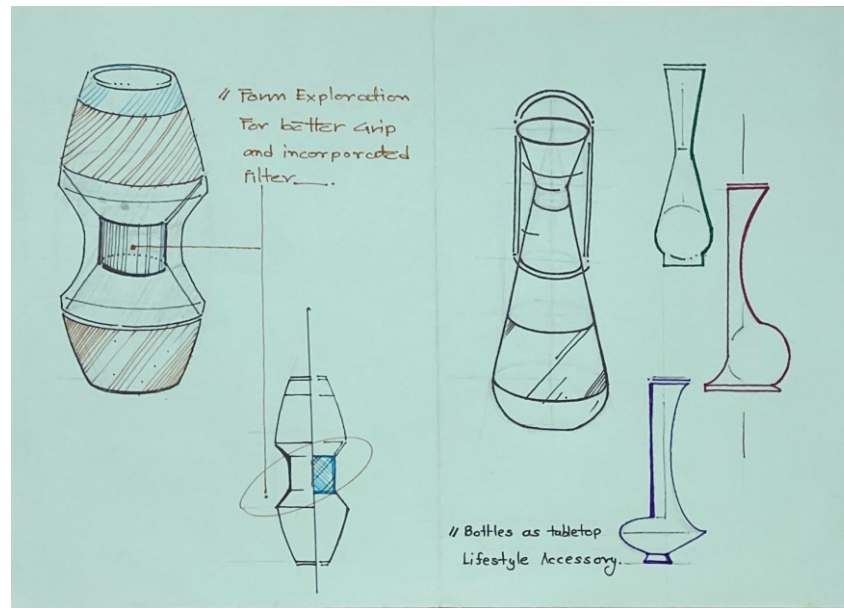 // Form Exploration
For better Grip
and incorporated
Filter___.
// Bottles as tabletop
Lifestyle Accessory.